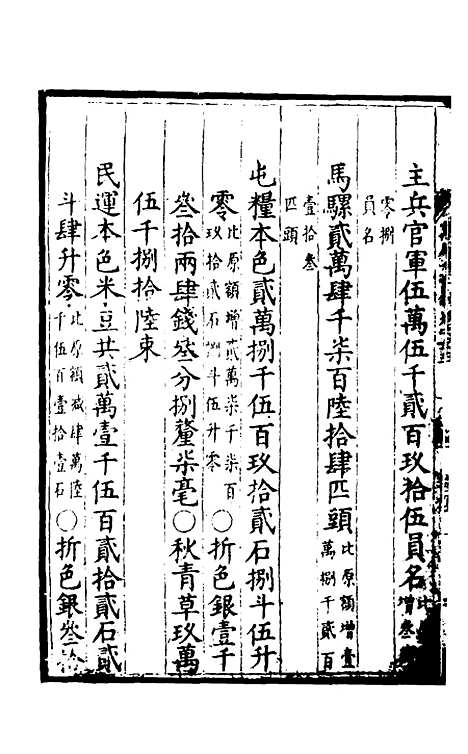 主兵官軍伍萬伍千貳百玖拾伍員名比增叁
零捌
員名
馬騾貳萬肆千柒百陸拾肆匹頭比原額增壹萬捌千貳百
壹拾叁
匹頭
屯糧本色貳萬捌千伍百玖拾貳石捌斗伍升
零比原額增貳萬柒千柒百玖拾貳石捌斗伍升零○折色銀壹千
叁拾兩肆錢叁分捌釐柒毫○秋青草玖萬
伍千捌拾陸束
民運本色米豆共貳萬壹千伍百貳拾貳石貳
斗肆升零比原額減肆萬陸千伍百壹拾壹石○折色銀叁拾